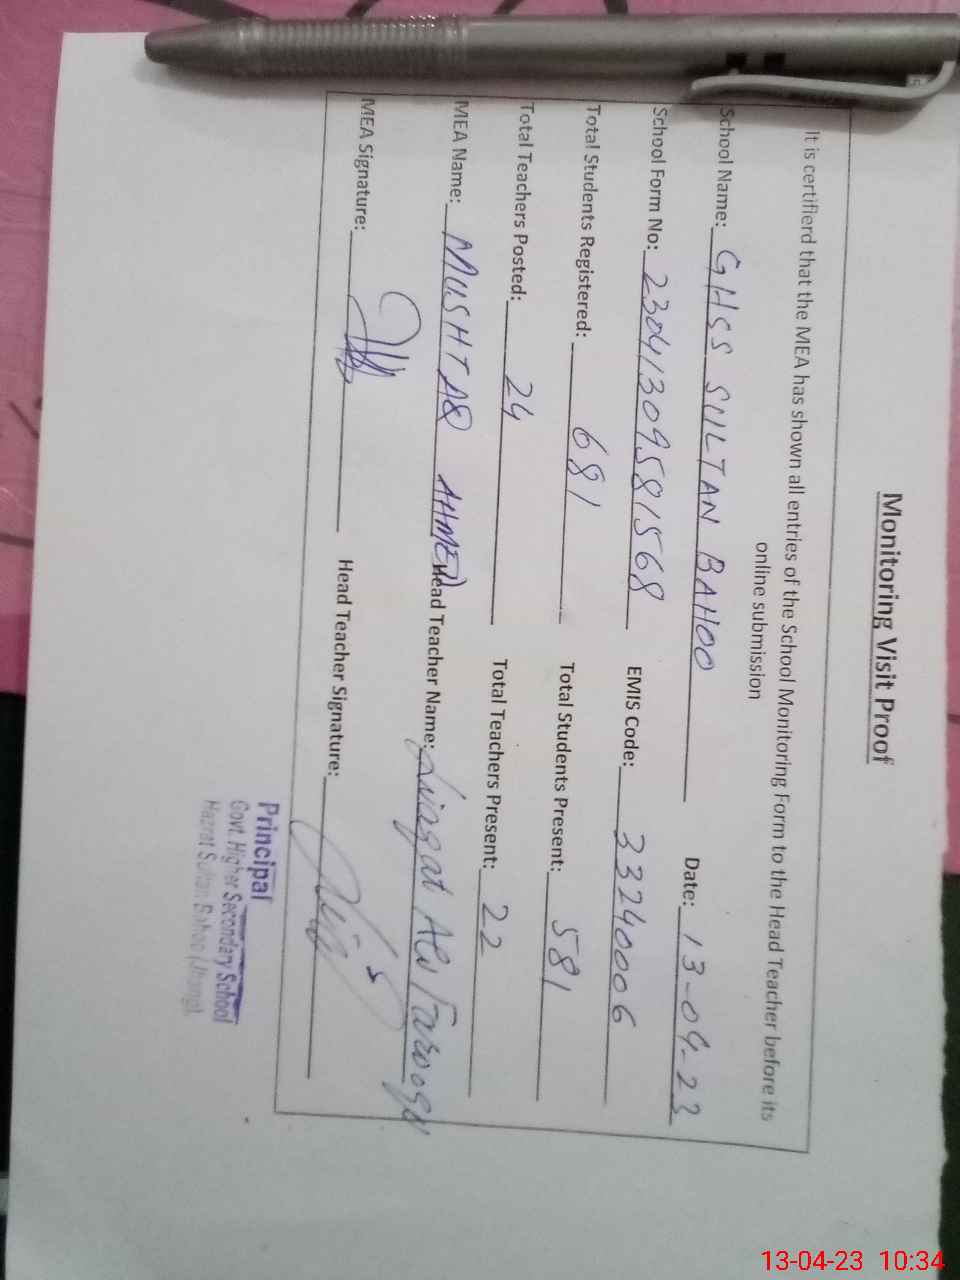 Monitoring Visit Proof
It is certifierd that the MEA has shown all entries of the School Monitoring Form to the Head Teacher before its
online submission
School Name: GHSS SULTAN BAHOO Date: 13-04-23
School Form No: 23041309581568 EMIS Code: 33240006
Total Students Registered: 681 Total Students Present: 581
Total Teachers Posted: 24 Total Teachers Present: 22
MEA Name: MUSHTAQ AHMED Head Teacher Name: Liaqat Ali Farooqi
MEA Signature: Head Teacher Signature:
Principal
Govt. Higher Secondary School
Hazrat Sultan Bahoo (Jhang)
13-04-23 10:34